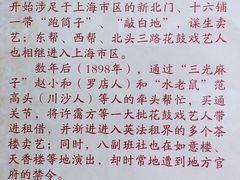 开始涉足于上海市区的新北门、十六铺
一带“跑筒子”、“敲白地”，谋生卖
艺；东帮、西帮、北头三路花鼓戏艺人
也相继进入上海市区。
数年后（1898年），通过“三光麻
子”赵小和（罗店人）和“水老鼠”范
高头（川沙人）等人的牵头帮忙，买通
关节，将许霭方等一大批花鼓戏艺人带
进租借，并渐进进入英法租界的多个茶
楼卖艺；同时，八副班社也在如意楼、
天香楼等地演出，却时常地遭到地方官府
的禁令。